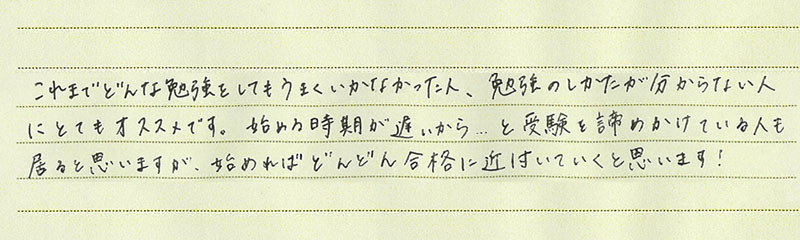 これまでどんな勉強をしてもうまくいかなかった人、勉強のしかたが分からない人
にとてもオススメです。始める時期が遅いから…と受験を諦めかけている人も
居ると思いますが、始めればどんどん合格に近付いていくと思います!